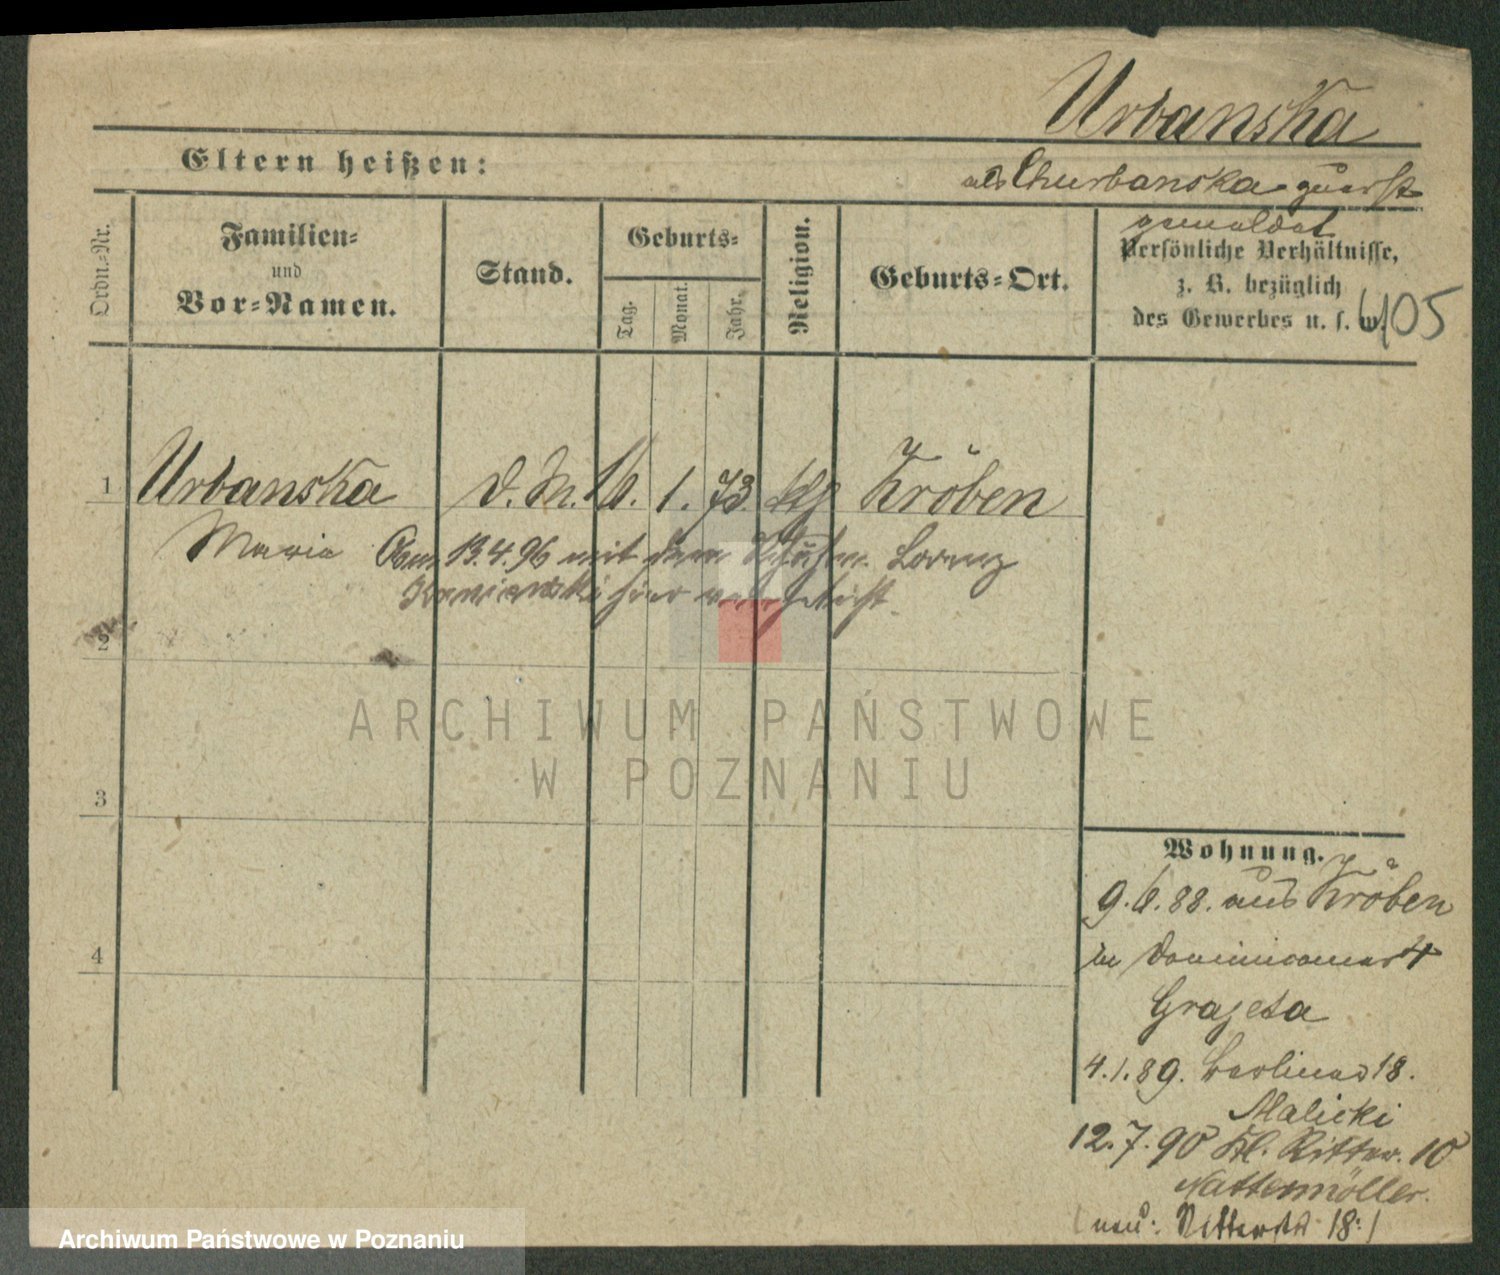 Urbanska
Eltern heißen:
als Churbanska zuerst
gemeldet
Ordn.-Nr.
Familien-
und
Vor-Namen.
Stand.
Geburts-
Tag.
Monat.
Jahr.
Religion.
Geburts-Ort.
Persönliche Verhältnisse,
z. B. bezüglich
des Gewerbes u. s. w.
405
1 Urbanska d. M. 16. 1. 73. kth Kröben
Maria Am 13.4.96 mit dem Schuhm. Lorenz
hier verheirathet
2
ARCHIWUM PAŃSTWOWE
W POZNANIU
3
4
Wohnung.
9.6.88. aus Kröben
in Dominicaner 4
Grajeta
4.1.89. Berliner 18.
Malicki
12.7.90 Kl. Ritter. 10
Nattermöller.
(neu: Ritterstr 18:)
Archiwum Państwowe w Poznaniu